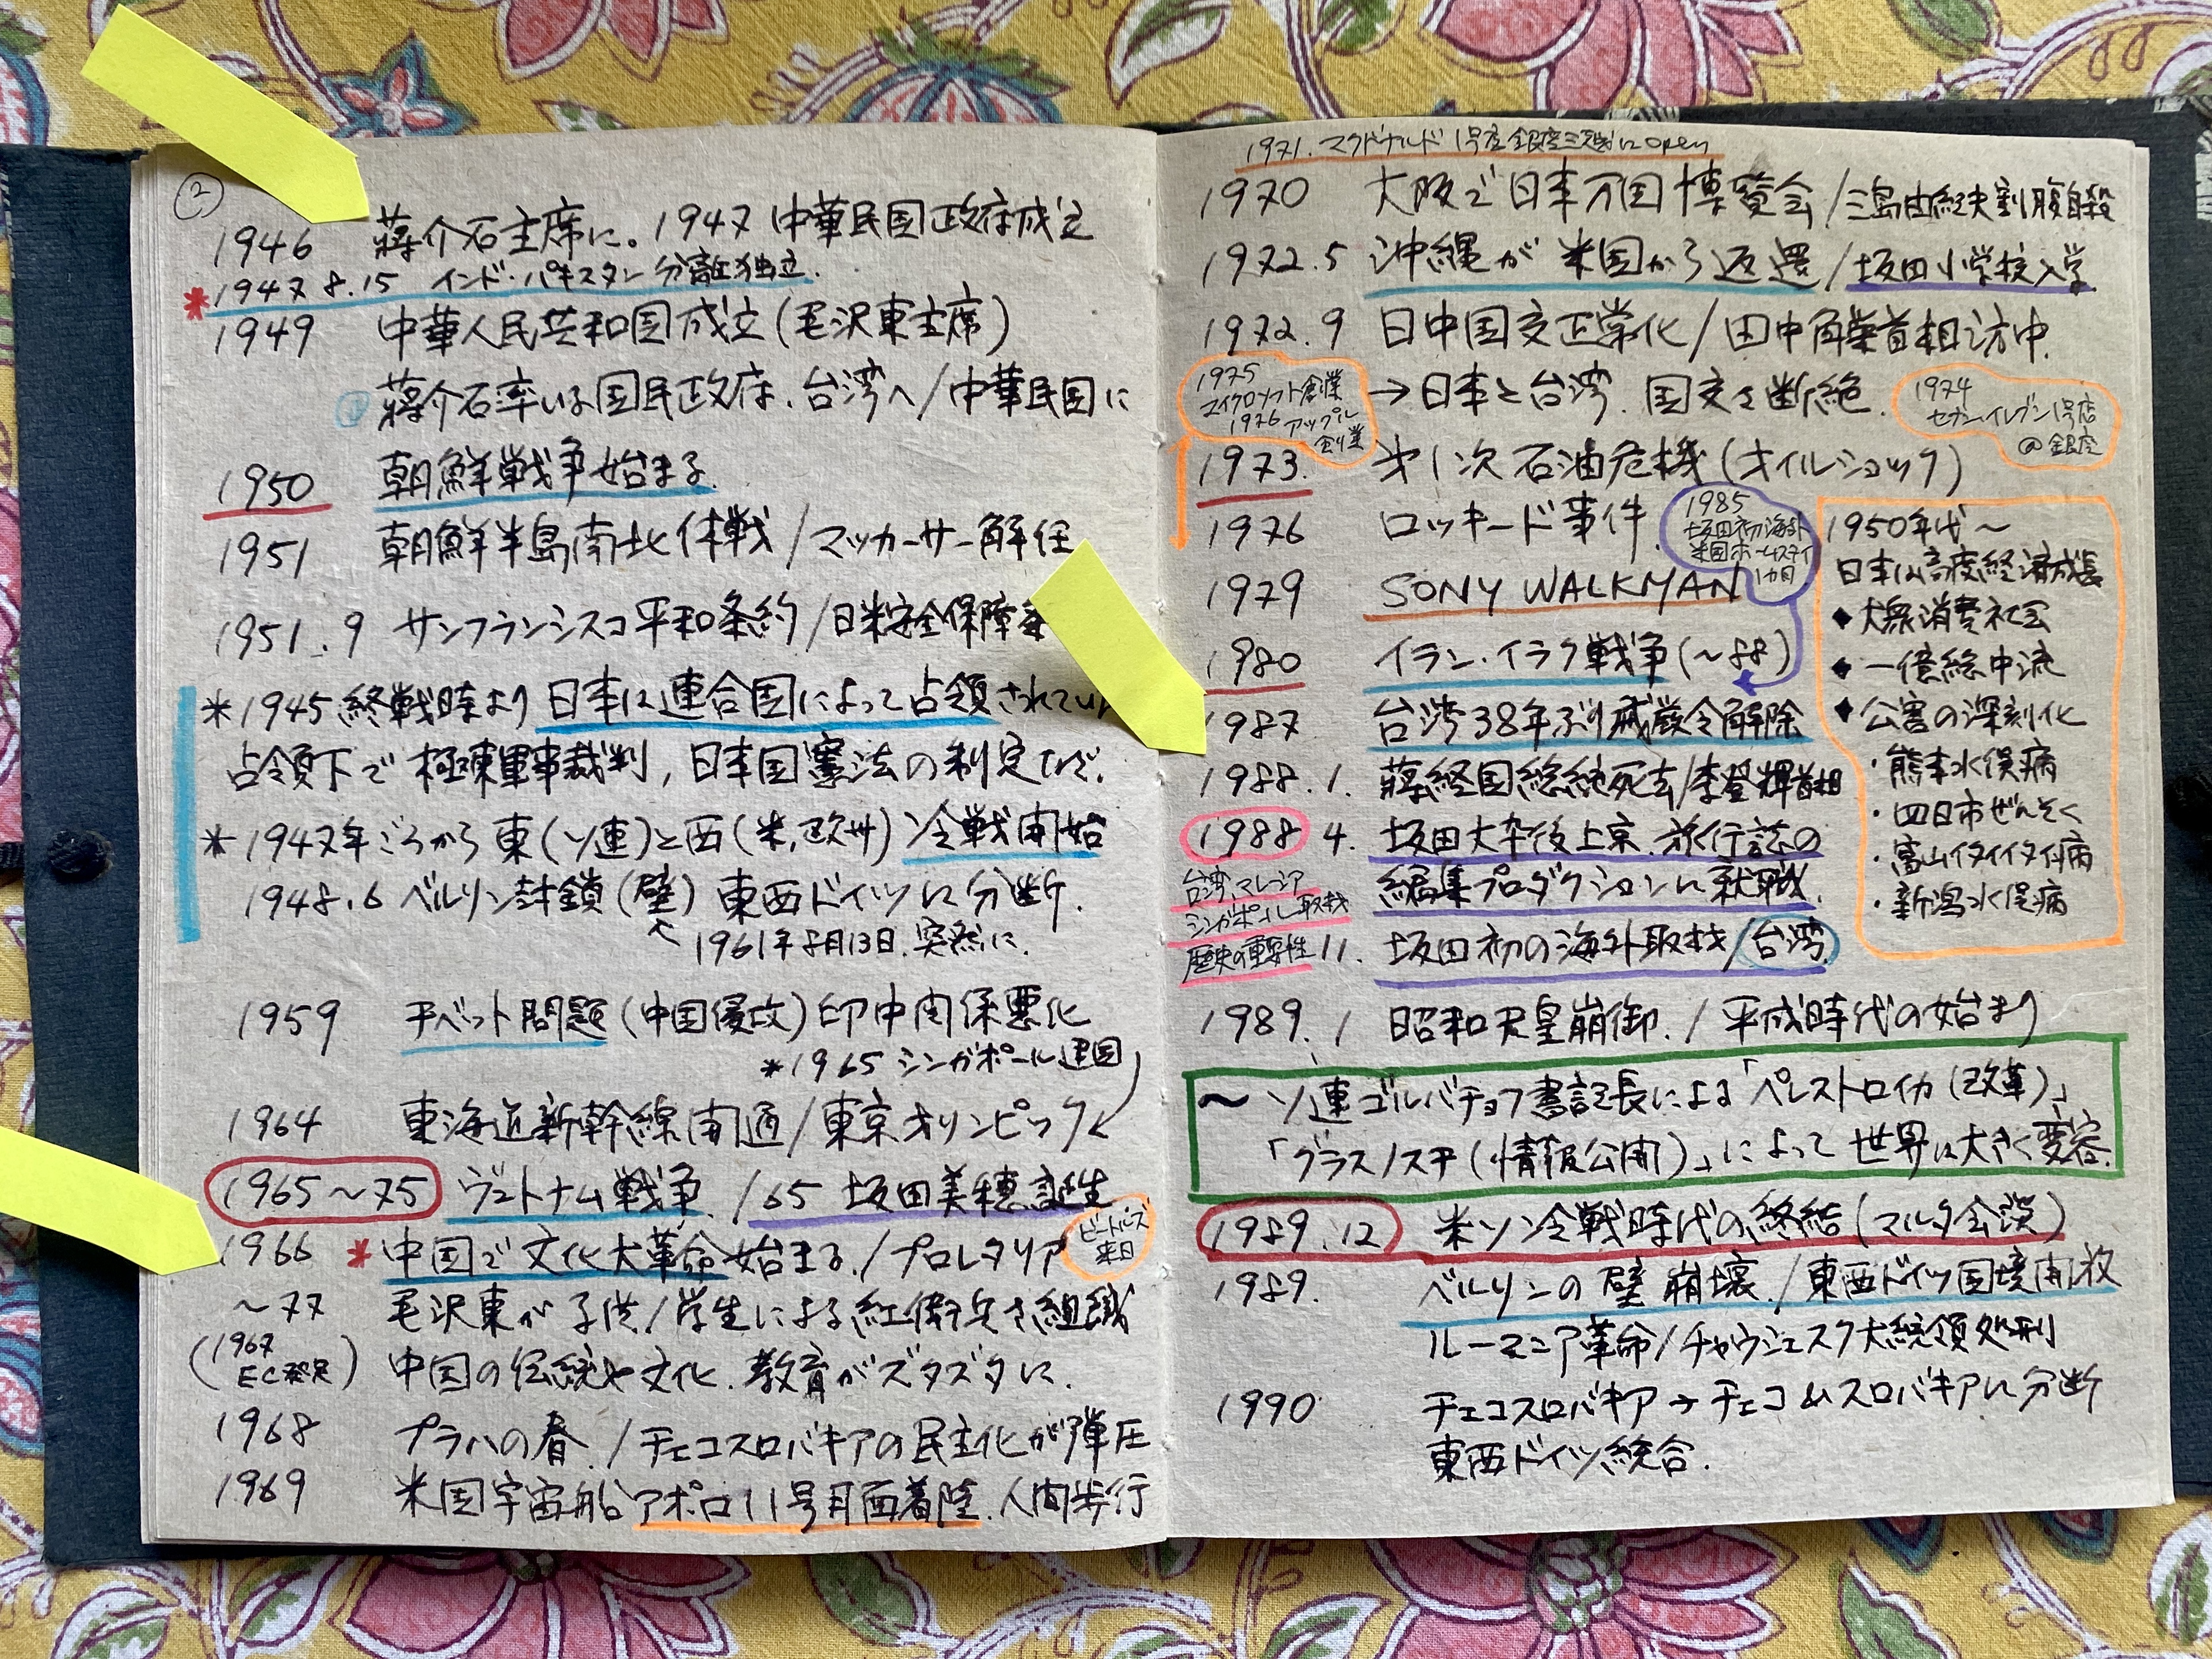 ②
1946 蒋介石主席に。1947 中華民国政府成立
*1947 8.15 インド・パキスタン分離独立.
1949 中華人民共和国成立(毛沢東主席)
蒋介石率いる国民政府、台湾へ/中華民国に
1950 朝鮮戦争始まる
1951 朝鮮半島南北休戦/マッカーサー解任
1951.9 サンフランシスコ平和条約/日米安全保障条
*1945 終戦時より日本は連合国によって占領されてい
占領下で極東軍事裁判,日本国憲法の制定など.
*1947年ごろから東(ソ連)と西(米,欧州)冷戦開始
1948.6 ベルリン封鎖(壁)東西ドイツに分断.
1961年8月13日.突然に.
1959 チベット問題(中国侵攻)印中関係悪化
*1965 シンガポール建国
1964 東海道新幹線開通/東京オリンピック
1965〜75 ヴェトナム戦争./65 坂田美穂誕生
1966 *中国で文化大革命始まる./プロレタリア
ビートルズ
来日
〜77 毛沢東が子供/学生による紅衛兵を組織
(1967
EC発足) 中国の伝統や文化.教育がズタズタに.
1968 プラハの春./チェコスロバキアの民主化が弾圧
1969 米国宇宙船アポロ11号月面着陸.人間歩行
1971.マクドナルド1号店銀座三越にopen
1970 大阪で日本万国博覧会/三島由紀夫割腹自殺
1972.5 沖縄が米国から返還/坂田小学校入学
1972.9 日中国交正常化/田中角栄首相訪中.
→日本と台湾.国交を断絶.
1975
マイクロソフト創業
1976 アップル
創業
1974
セブンイレブン1号店
@銀座
1973. 才1次石油危機(オイルショック)
1976 ロッキード事件.
1985
坂田初海外
米国ホームステイ
1カ月
1979 SONY WALKMAN
1980 イラン・イラク戦争(〜88)
1987 台湾38年ぶり戒厳令解除
1988.1. 蒋経国総統死去/李登輝首相
1988 4. 坂田大卒後上京.旅行誌の
編集プロダクションに就職.
台湾,マレーシア
シンガポール取材
歴史の重要性
11. 坂田初の海外取材/台湾.
1950年代〜
日本は高度経済成長
◆大衆消費社会
◆一億総中流
◆公害の深刻化
・熊本水俣病
・四日市ぜんそく
・富山イタイイタイ病
・新潟水俣病
1989.1 昭和天皇崩御./平成時代の始まり
〜ソ連ゴルバチョフ書記長による「ペレストロイカ(改革)」
「グラスノスチ(情報公開)」によって世界は大きく変容.
1989.12 米ソ冷戦時代の終結(マルタ会談)
1989. ベルリンの壁崩壊./東西ドイツ国境開放
ルーマニア革命/チャウシェスク大統領処刑
1990. チェコスロバキア→チェコ&スロバキアに分断
東西ドイツ統合.